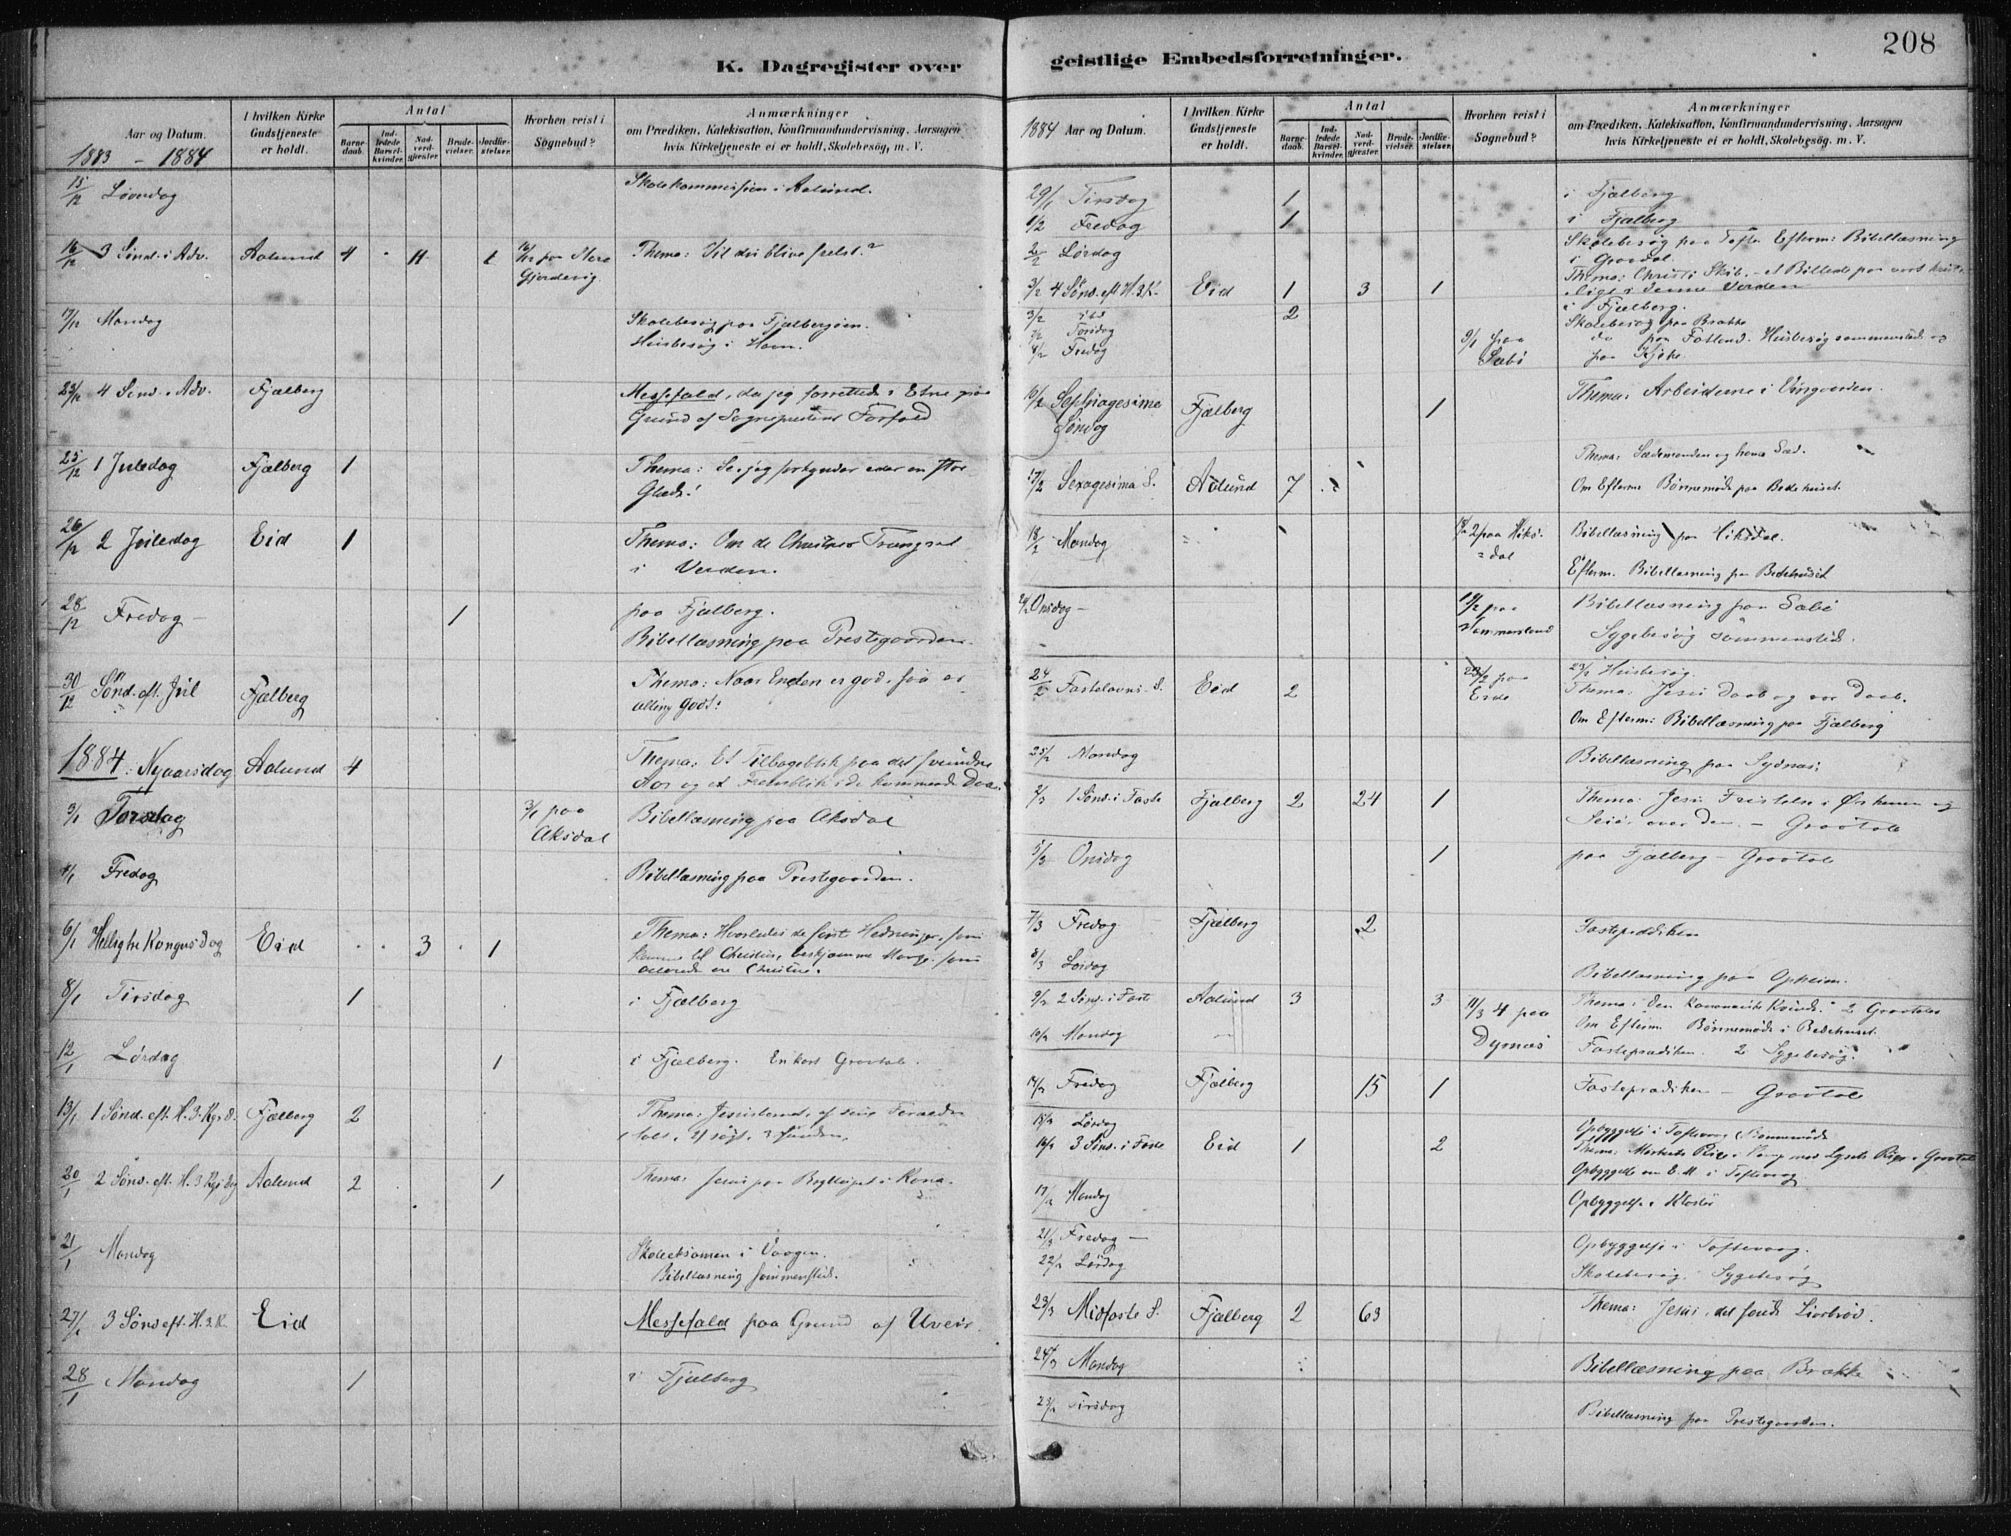 208
K. Dagregister over geistlige Embedsforretninger.
Aar og Datum.
1883 - 1884
I hvilken Kirke Gudstjeneste er holdt.
Antal
Barnedaab.
Indledede Barselkvinder.
Nadverdgjester
Brudevielser.
Jordfæstelser.
Hvorhen reist i Sognebud?
Anmærkninger
om Prædiken, Katekisation, Konfirmandundervisning, Aarsagen
hvis Kirketjeneste ei er holdt, Skolebesøg, m. V.
15/12 Løverdag Skolekommission i Aalund.
16/12 3 Sønd. i Adv. Aalund 4 11 1 Thema: Vil du blive frelst?
17/12 Mandag Skolebesøg paa Fjælbergøen.
Husbesøg i Havn.
23/12 4 Sønd. i Adv. Fjælberg Messefald, da jeg forrettede i Etne paa
Grund af Sognepræstens Forfald
25/12 1 Juledag Fjælberg 1 Thema: Se jeg forkynder eder en stor
Glæde!
26/12 2 Juledag Eid 1 Thema: Om de Christnes Trængsel
i Verden.
28/12 Fredag - 1 paa Fjælberg.
Bibellæsning paa Prestegaarden.
30/12 Sønd. eft. Jul Fjælberg Thema: Naar Enden er god, saa er
alting godt!
1884: Nyaarsdag Aalund 4 Thema: Et Tilbageblik paa det svundne
Aar og et Fremblik i de kommende Dage.
3/1 Torsdag 3/1 paa Aksdal Bibellæsning paa Aksdal
4/1 Fredag Bibellæsning paa Prestegaarden.
6/1 Hellig tre Kongers Dag Eid 3 1 Thema: Hvorledes de Hedninger, som
komme til Christus, beskjæmme Mange, som
allerede ere Christne.
8/1 Tirsdag 1 i Fjælberg
12/1 Lørdag 1 i Fjælberg. En kort Gravtale.
13/1 1 Sønd. eft. H. 3. Kgs D. Fjælberg 2 Thema:
20/1 2 Sønd. eft. H. 3 Kgs Dag Aalund 2 1 Thema: Jesus paa Bryllupet i Kana.
21/1 Mandag Skoleeksamen i Vaagen.
Bibellæsning sammesteds.
27/1 3 Sønd eft. H. 3. K. Eid Messefald paa Grund af Uveir.
28/1 Mandag 1 i Fjælberg
1884 Aar og Datum.
I hvilken Kirke Gudstjeneste er holdt.
Antal
Barnedaab.
Indledede Barselkvinder.
Nadverdgjester
Brudevielser.
Jordfæstelser.
Hvorhen reist i Sognebud?
Anmærkninger
om Prædiken, Katekisation, Konfirmandundervisning, Aarsagen
hvis Kirketjeneste ei er holdt, Skolebesøg. m. V.
29/1 Tirsdag 1 i Fjælberg
1/2 Fredag 1 i Fjælberg
2/2 Lørdag Skolebesøg paa Tofte Efterm: Bibellæsning
3/2 4 Sønd. eft H. 3. K. Eid 1 3 1 Thema: Christi Skib - et Billede paa vort
i denne Verden
3/2 2 i Fjælberg.
7/2 Torsdag Skolebesøg paa Brække
8/2 Fredag do paa Fatland. Husbesøg sammesteds og
10/2 Septuagesima Søndag Fjælberg 1 Thema: Arbeiderne i Vingaarden.
17/2 Sexagesima S. Aalund 7 Thema: Sædemanden og hans Sæd.
Om Efterm. Børnemøde paa Bedehuset.
18/2 Mandag Bibellæsning paa
Efterm. Bibellæsning paa Bedehuset
20/2 Onsdag - Bibellæsning paa Sæbø
Sygebesøg sammesteds.
24/2 Fastelavns-S. Eid 2 23/2 paa Eide 23/2 Husbesøg.
Thema: Jesu Daab og vor Daab.
Om Efterm: Bibellæsning paa Fjælberg
25/2 Mandag Bibellæsning paa Sydnæs;
2/3 1 Sønd. i Faste Fjælberg 2 24 1 Thema: Jesu Fristelse i Ørkenen og
Seier over den. - Gravtale
5/3 Onsdag 1 paa Fjælberg - Gravtale
7/3 Fredag Fjælberg 2 Fasteprædiken
8/3 Lørdag Bibellæsning paa Opheim.
9/3 2 Sønd. i Faste Aalund 3 3 Thema: Den kananæiske Kvinde. 2 Gravtaler
Om Efterm Børnemøde i Bedehuset.
10/3 Mandag 11/3 4 paa Fasteprædiken. 2 Sygebesøg.
14/3 Fredag Fjælberg 15 1 Fasteprædiken - Gravtale
15/3 Lørdag Opbyggelse i Toftevaag Børnemøde
16/3 3 Sønd. i Faste Eid 1 2 Thema: Mørkets Rige i Kamp med Lysets Rige. Gravtale
Opbyggelse om E. M. i Toftevaag
17/3 Mandag Opbyggelse i Kloster
21/3 Fredag - Opbyggelse i Toftevaag.
22/3 Lørdag Skolebesøg. Sygebesøg
23/3 Midfaste S. Fjælberg 2 63 Thema: Jesus, det sande Livsbrød.
24/3 Mandag Bibellæsning paa Brække
25/3 Tirsdag Bibellæsning paa Prestegaarden.